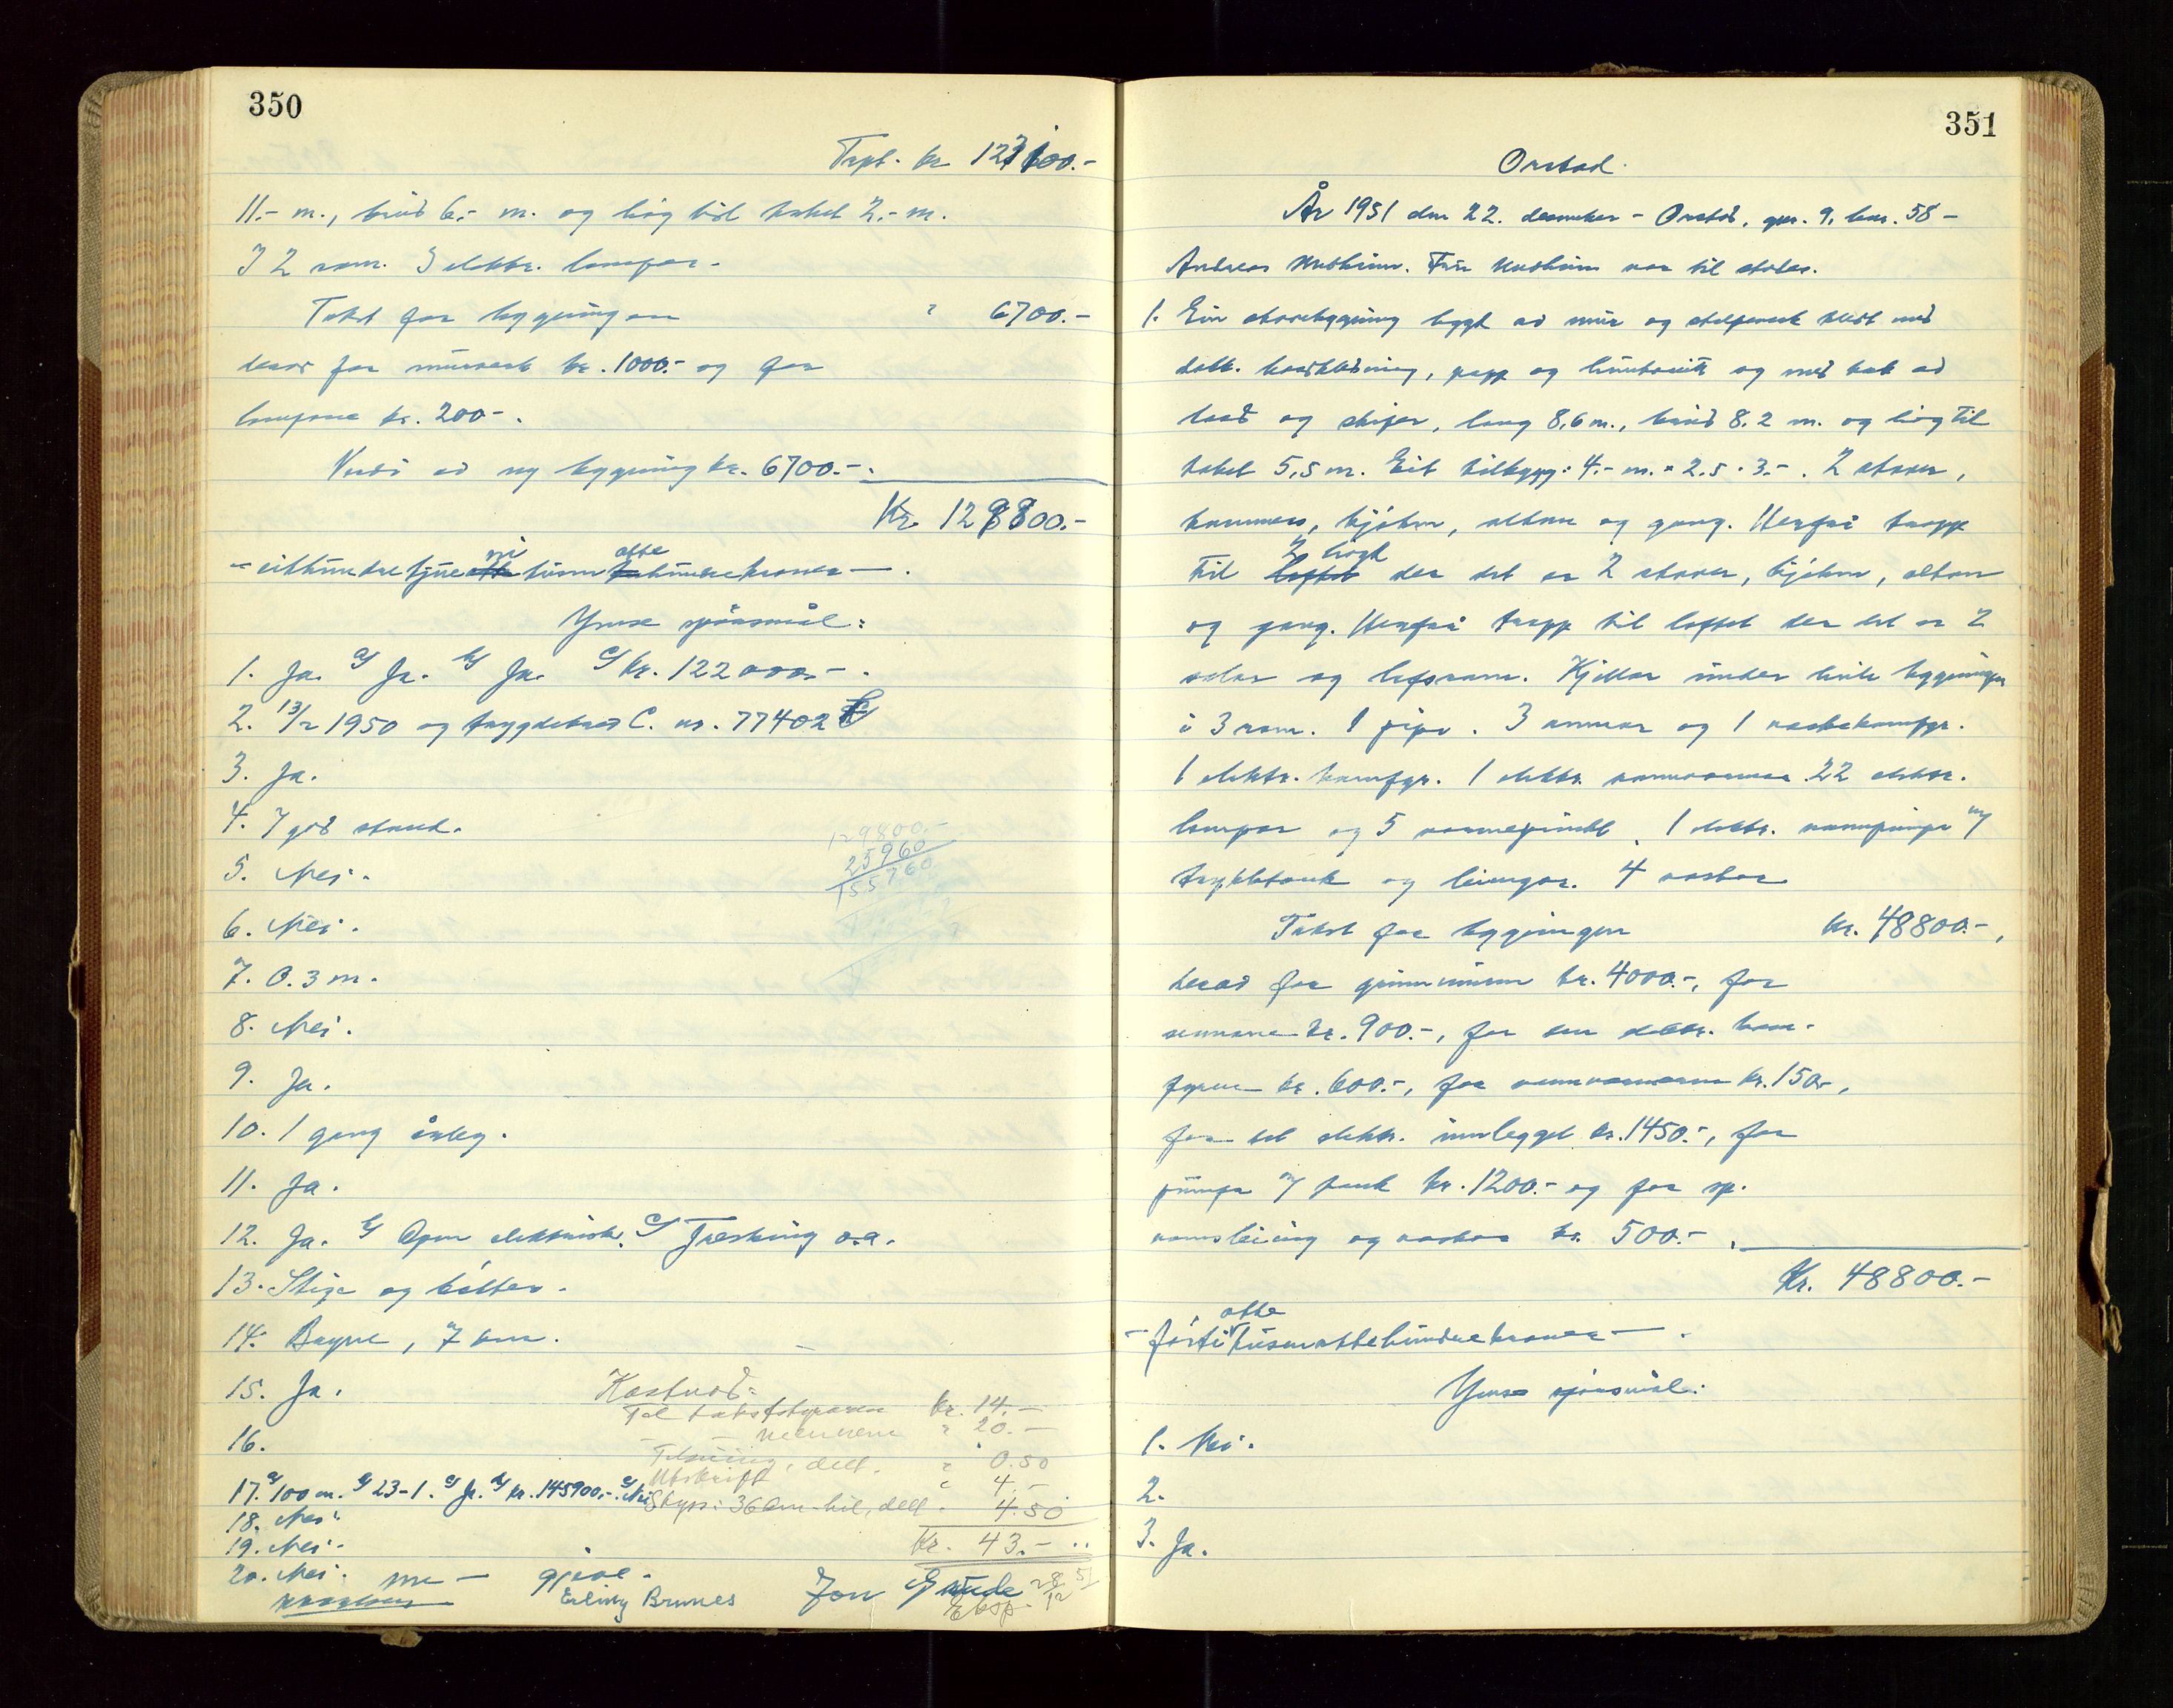 350
Trpt. kr 123100.-
11.- m., breid 6.- m. og høg til taket 2.- m.
I 2 rom. 3 elektr. lampor.
Takst for bygningen " 6700.-
derav for murverk kr. 1000.- og for
lampene kr. 200.-.
Verdi av ny bygning kr. 6700.-.
Kr. 129800.-
- eitthundretjueni tusen åttehundrekroner -.
Ymse spørsmål:
1. Ja. a) Ja. b) Ja. c) kr. 122000.-.
2. 13/2 1950 og trygdebrev C. nr. 77402
3. Ja.
4. I god stand.
129800.-
25960
155760
5. Nei.
6. Nei.
7. 0.3 m.
8. Nei.
9. Ja.
10. 1 gang årleg.
11. Ja.
12. Ja. b) Open elektrisk. c) Tresking o.a.
13. Stige og bøtter.
14. Bryne, 7 km.
15. Ja.
Kostnad:
Til takststyraren kr. 14.-
- - mennene " 20.-
16.
Tilseiing, delt. " 0.50
Utskrift " 4.-
17. a) 100 m. b) 23-1. c) Ja. d) kr. 145900.-. e) Nei
Skyss: 36 km bil, delt. 4.50
18. Nei.
19. Nei.
Kr. 43.-
20. Nei.
Erling Brunes
Jon Grude
Eksp. 28/12 51
351
Orstad.
År 1951 den 22. desember - Orstad, gnr. 9, bnr. 58 -
Andreas Husheim. Fru Husheim var til stades.
1. Ein stovebygning bygt av mur og stolpeverk kledt med
dobb. bordkledning, papp og og med tak av
bord og skifer, lang 8,6 m., breid 8.2 m. og høg til
taket 5,5 m. Eit tilbygg: 4.- m. × 2.5 × 3.-. 2 stover,
kammers, kjøken, altan og gang. Herfrå trapp
til 2 høgd der det er 2 stover, kjøken, altan
og gang. Herfrå trapp til loftet der det er 2
salar og loftsrom. Kjellar under heile bygningen
i 3 rom. 1 pipe. 3 omnar og 1 vaskekomfyr.
1 elektr. komfyr. 1 elektr. varmovnar 22 elektr.
lampor og 5 varmepunkt. 1 elektr. vasspumpe m/
trykktank og leingar. 4 vaskar
Takst for bygningen kr. 48800.-,
derav for grunnmuren kr. 4000.-, for
omnane kr. 900.-, for den elektr. kom-
fyren kr. 600.-, for kr. 150.-,
for det elektr. innlegget kr. 1450.-, for
pumpe m/ tank kr. 1200.- og for
vassleiing og vaskar kr. 500.-.
Kr. 48800.-
- førtiåttetusenåttehundrekroner -.
Ymse spørsmål:
1. Nei.
2.
3. Ja.